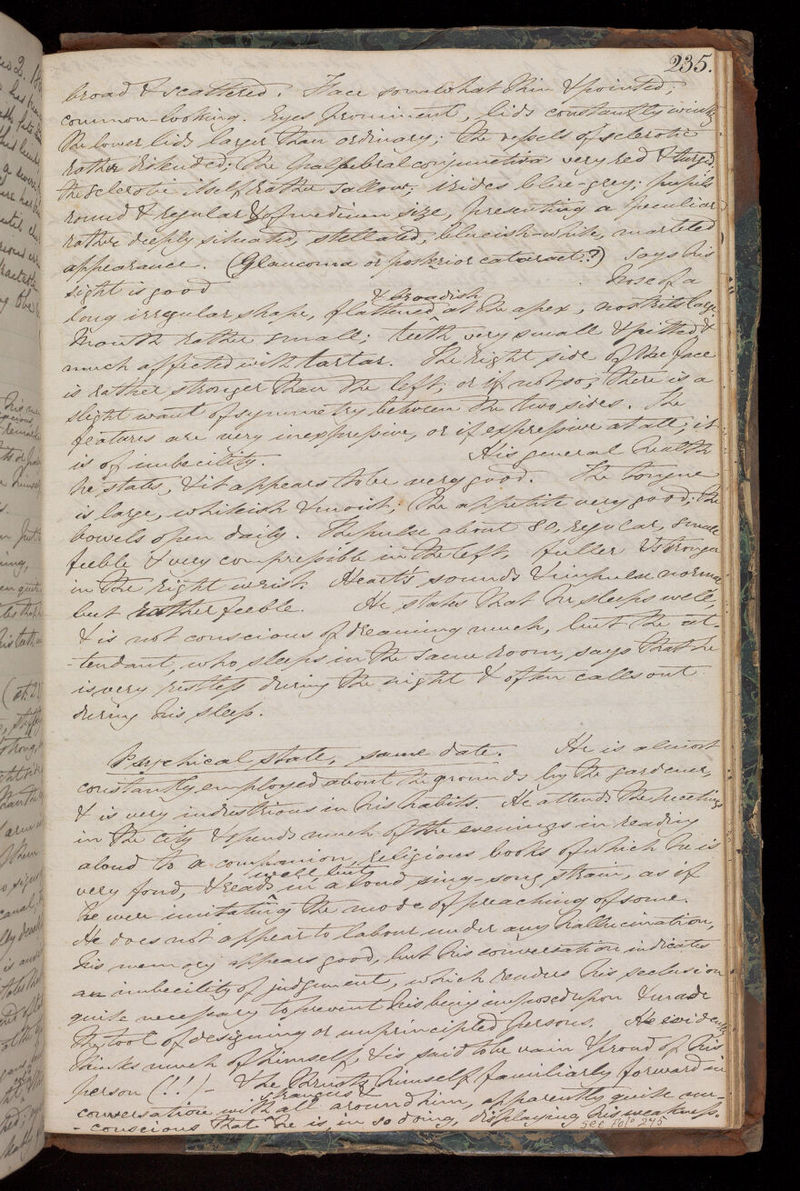 235.
broad & scattered. Face somewhat thin & pointed,
common-looking. Eyes prominent, lids constantly winking
the lower lids larger than ordinary; the vessels of sclerotic
rather distended; the palpebral conjunctiva very red & turgid,
the sclerotic itself rather sallow; irides blue-grey; pupils
round & regular & of medium size, presenting a peculiar
rather deeply situated, stellated, blueish-white, marbled
appearance. (Glaucoma or posterior cataract?) Says his
sight is good. Nose of a
long irregular shape, flattened & broadish at the apex, nostrils large
Mouth rather small; teeth very small & pitted &
much affected with tartar. The right side of the face
is rather stronger than the left, or if not so, there is a
slight want of symmetry between the two sides. The
features are very inexpressive, or if expressive at all, it
is of imbecility. His general health
he states, & it appears to be very good. The tongue
is large, whitish & moist, the appetite very good; the
bowels open daily. The pulse about 80, regular, small
feeble & very compressible in the left, fuller & stronger
in the right wrist. Heart's sounds & impulse normal
but rather feeble. He states that he sleeps well,
& is not conscious of dreaming much, but the at-
-tendant, who sleeps in the same room, says that he
is very restless during the night & often calls out
during his sleep.
Psychical state, same date. He is almost
constantly employed about the grounds by the gardener,
& is very industrious in his habits. He attends the meetings
in the city & spends much of the evenings in reading
aloud to a companion, religious books of which he is
very fond, & reads well, but in a loud sing-song strain, as if
he were imitating the mode of preaching of some.
He does not appear to labour under any hallucination,
his memory appears good, but his conversation indicates
an imbecility of judgment, which renders his seclusion
quite necessary to prevent his being imposed upon & made
the tool of designing or unprincipled persons. He evidently
thinks much of himself, & is said to be vain & proud of his
person (!!) - & he thrusts himself familiarly forward in
conversation with strangers & all around him, apparently quite un-
-conscious that he is, in so doing, displaying his weakness.
See Folo 245